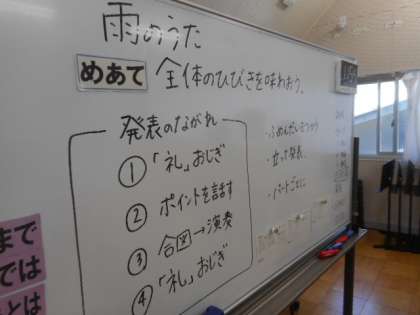 雨のうた
めあて 全体のひびきを味わおう。
発表のながれ
① 「礼」おじぎ
② ポイントを話す
③ 合図→演奏
④ 「礼」おじぎ
・立って発表
・パートごとに
まで
では
とは